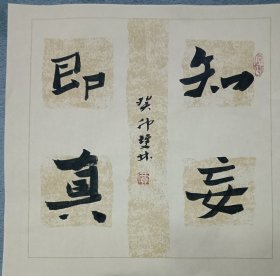 知妄
即真
癸卯